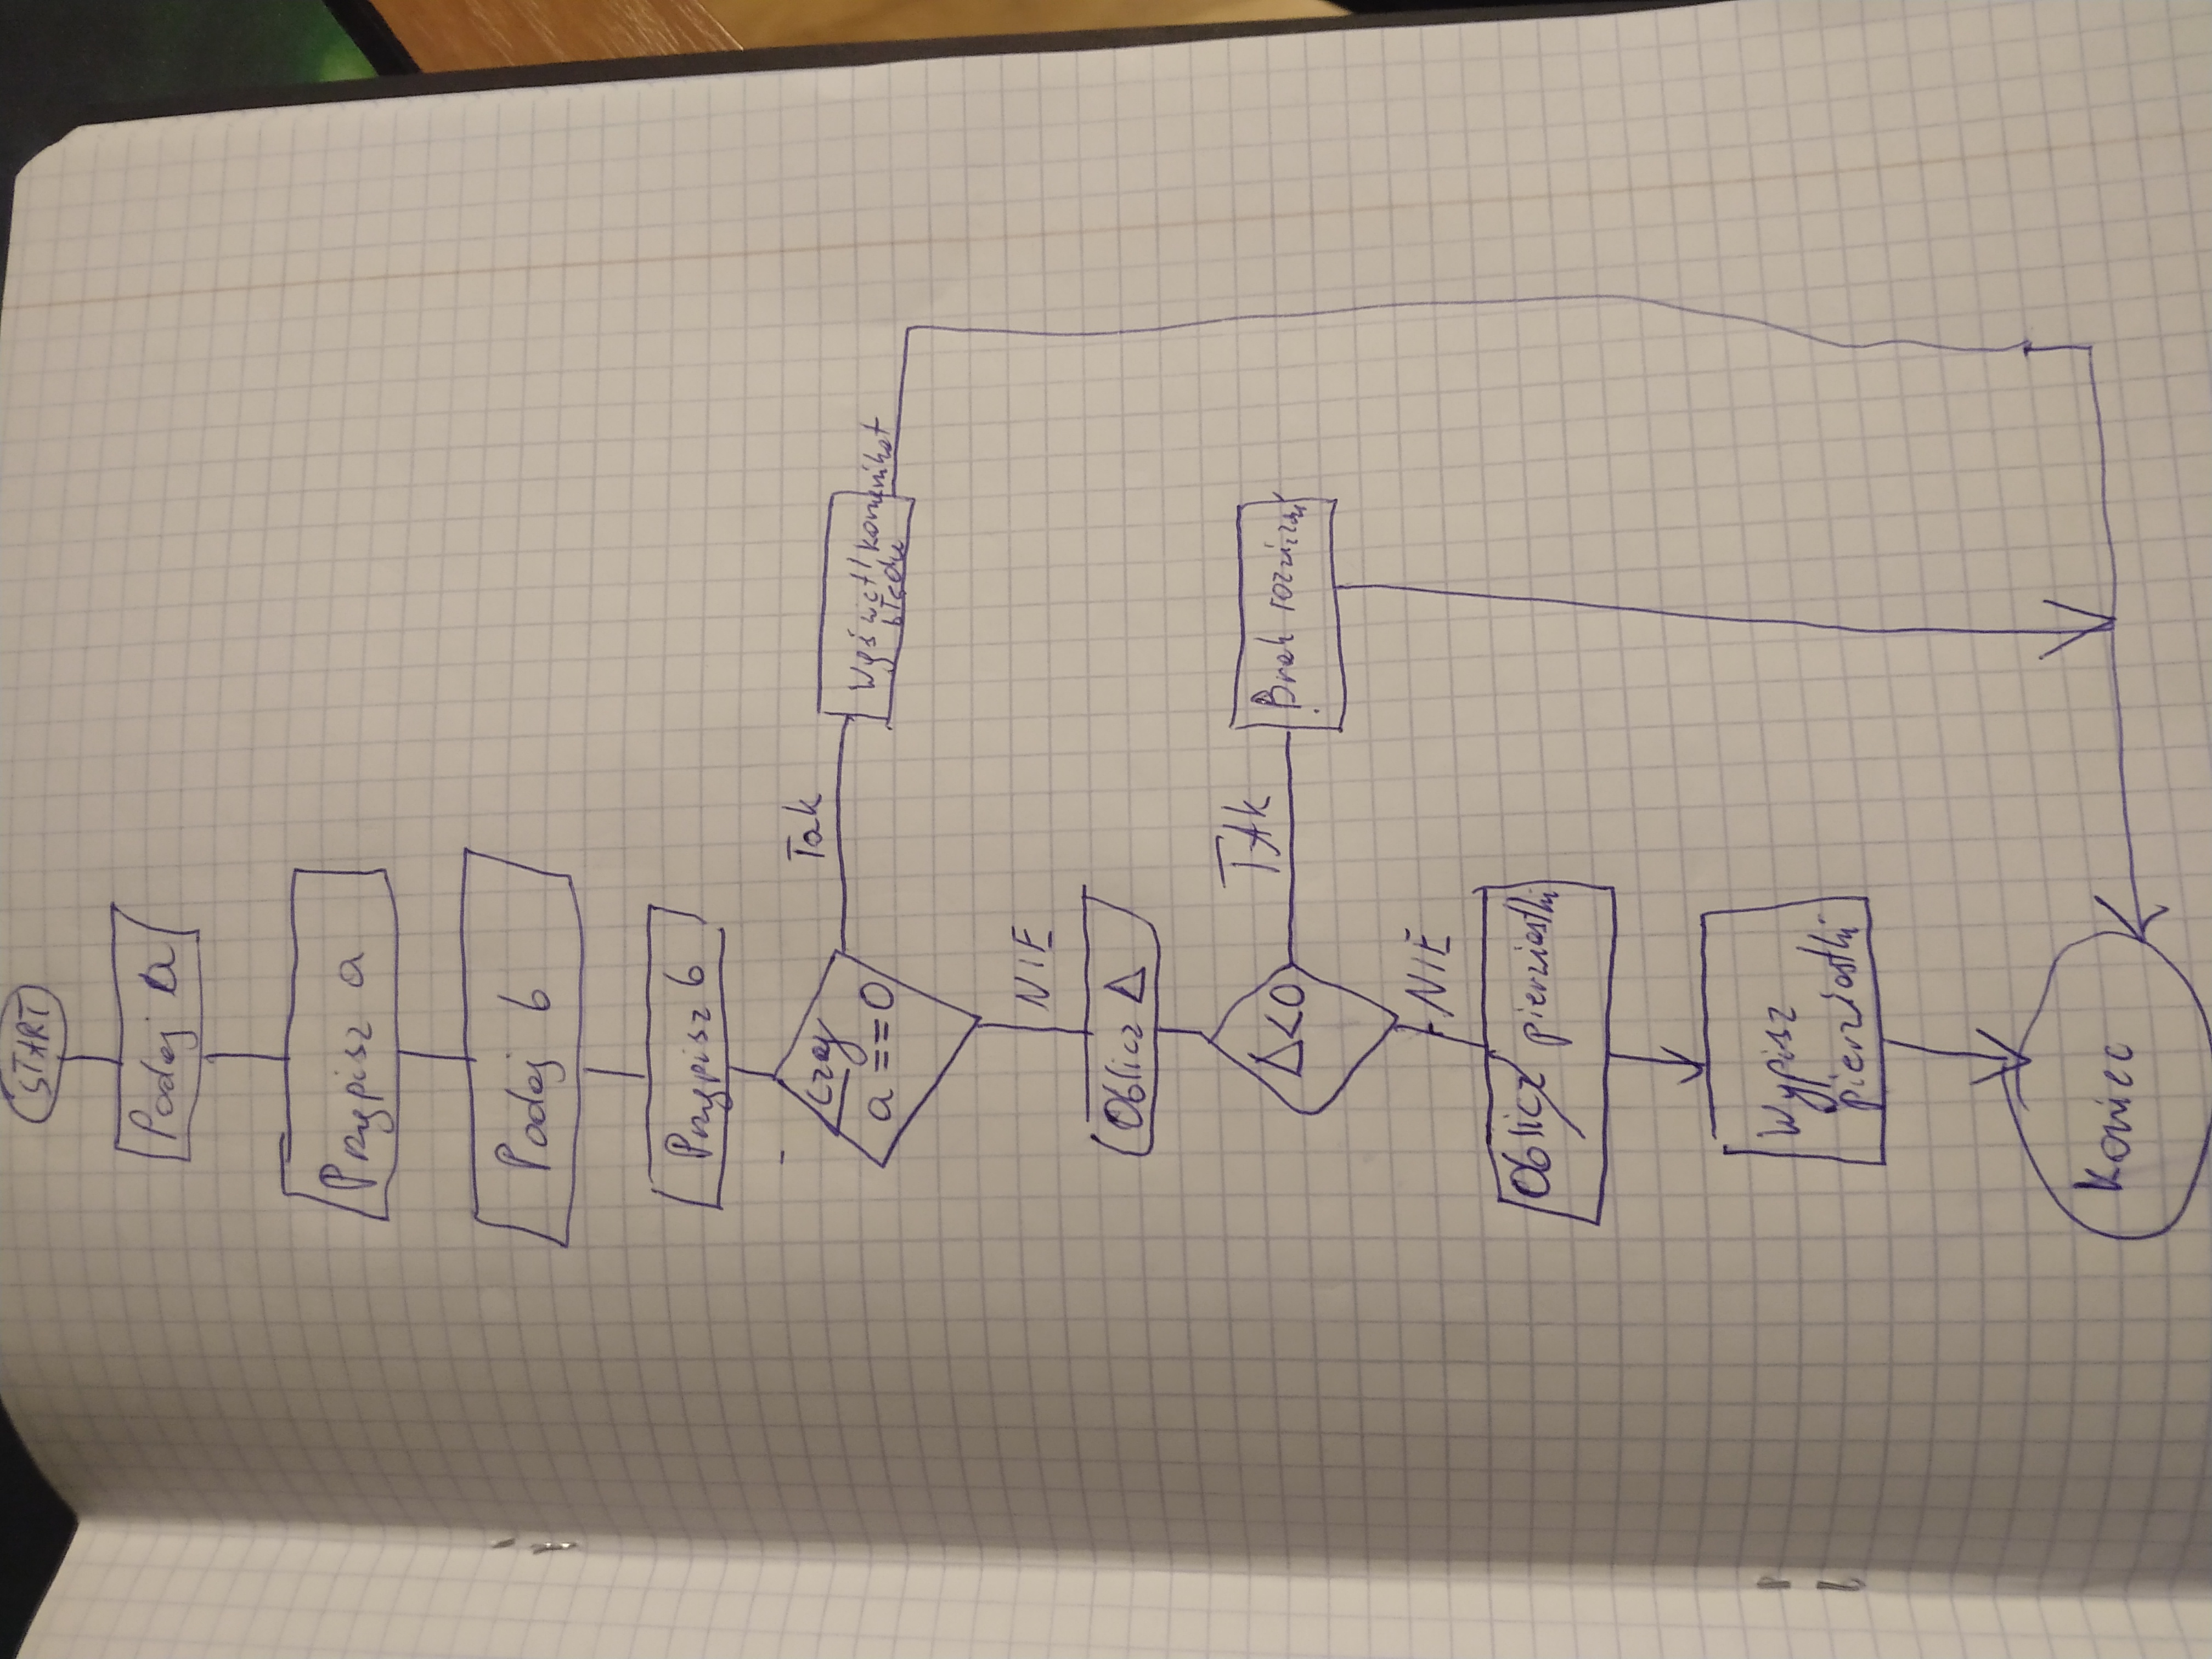 START
Podaj a
Przypisz a
Podaj b
Przypisz b
Czy
a == 0
Tak
Wyświetl komunikat
błędu
NIE
Oblicz Δ
Δ<0
TAK
Brak
NIE
Oblicz pierwiastki
Wypisz
pierwiastki
Koniec